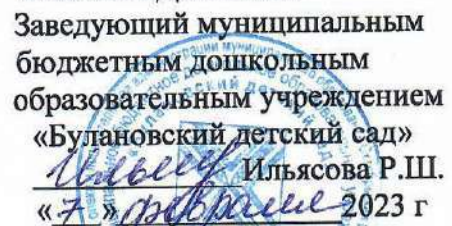 Заведующий муниципальным
бюджетным дошкольным
образовательным учреждением
«Булановский детский сад»
Ильясова Р.Ш.
«7» февраля 2023 г